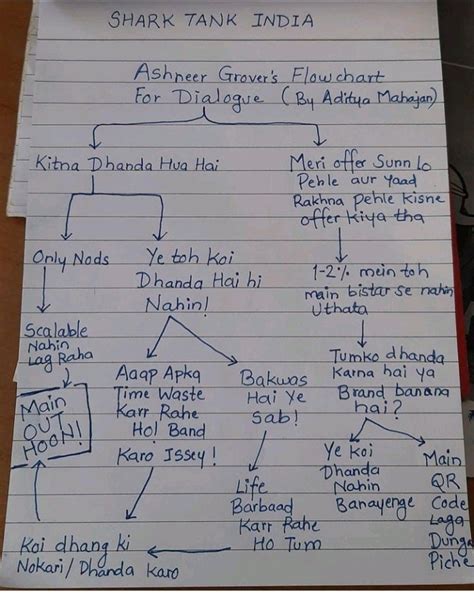 SHARK TANK INDIA
Ashneer Grover's Flowchart
For Dialogue (By Aditya Mahajan)
Kitna Dhanda Hua Hai
Meri offer Sunn lo
Pehle aur Yaad
Rakhna pehle kisne
offer kiya tha
Only Nods
Ye toh Koi
Dhanda Hai hi
Nahin!
1-2% mein toh
main bistar se nahin
Uthata
Scalable
Nahin
Lag Raha
Main
OUT
HOON!
Aaap Apka
Time Waste
Karr Rahe
Ho! Band
Karo Issey!
Bakwas
Hai Ye
Sab!
Tumko dhanda
Karna hai ya
Brand banana
hai?
Life
Barbaad
Karr Rahe
Ho Tum
Ye Koi
Dhanda
Nahin
Banayenge
Main
QR
Code
Laga
Dunga
Piche
Koi dhang ki
Nokari/Dhanda Karo